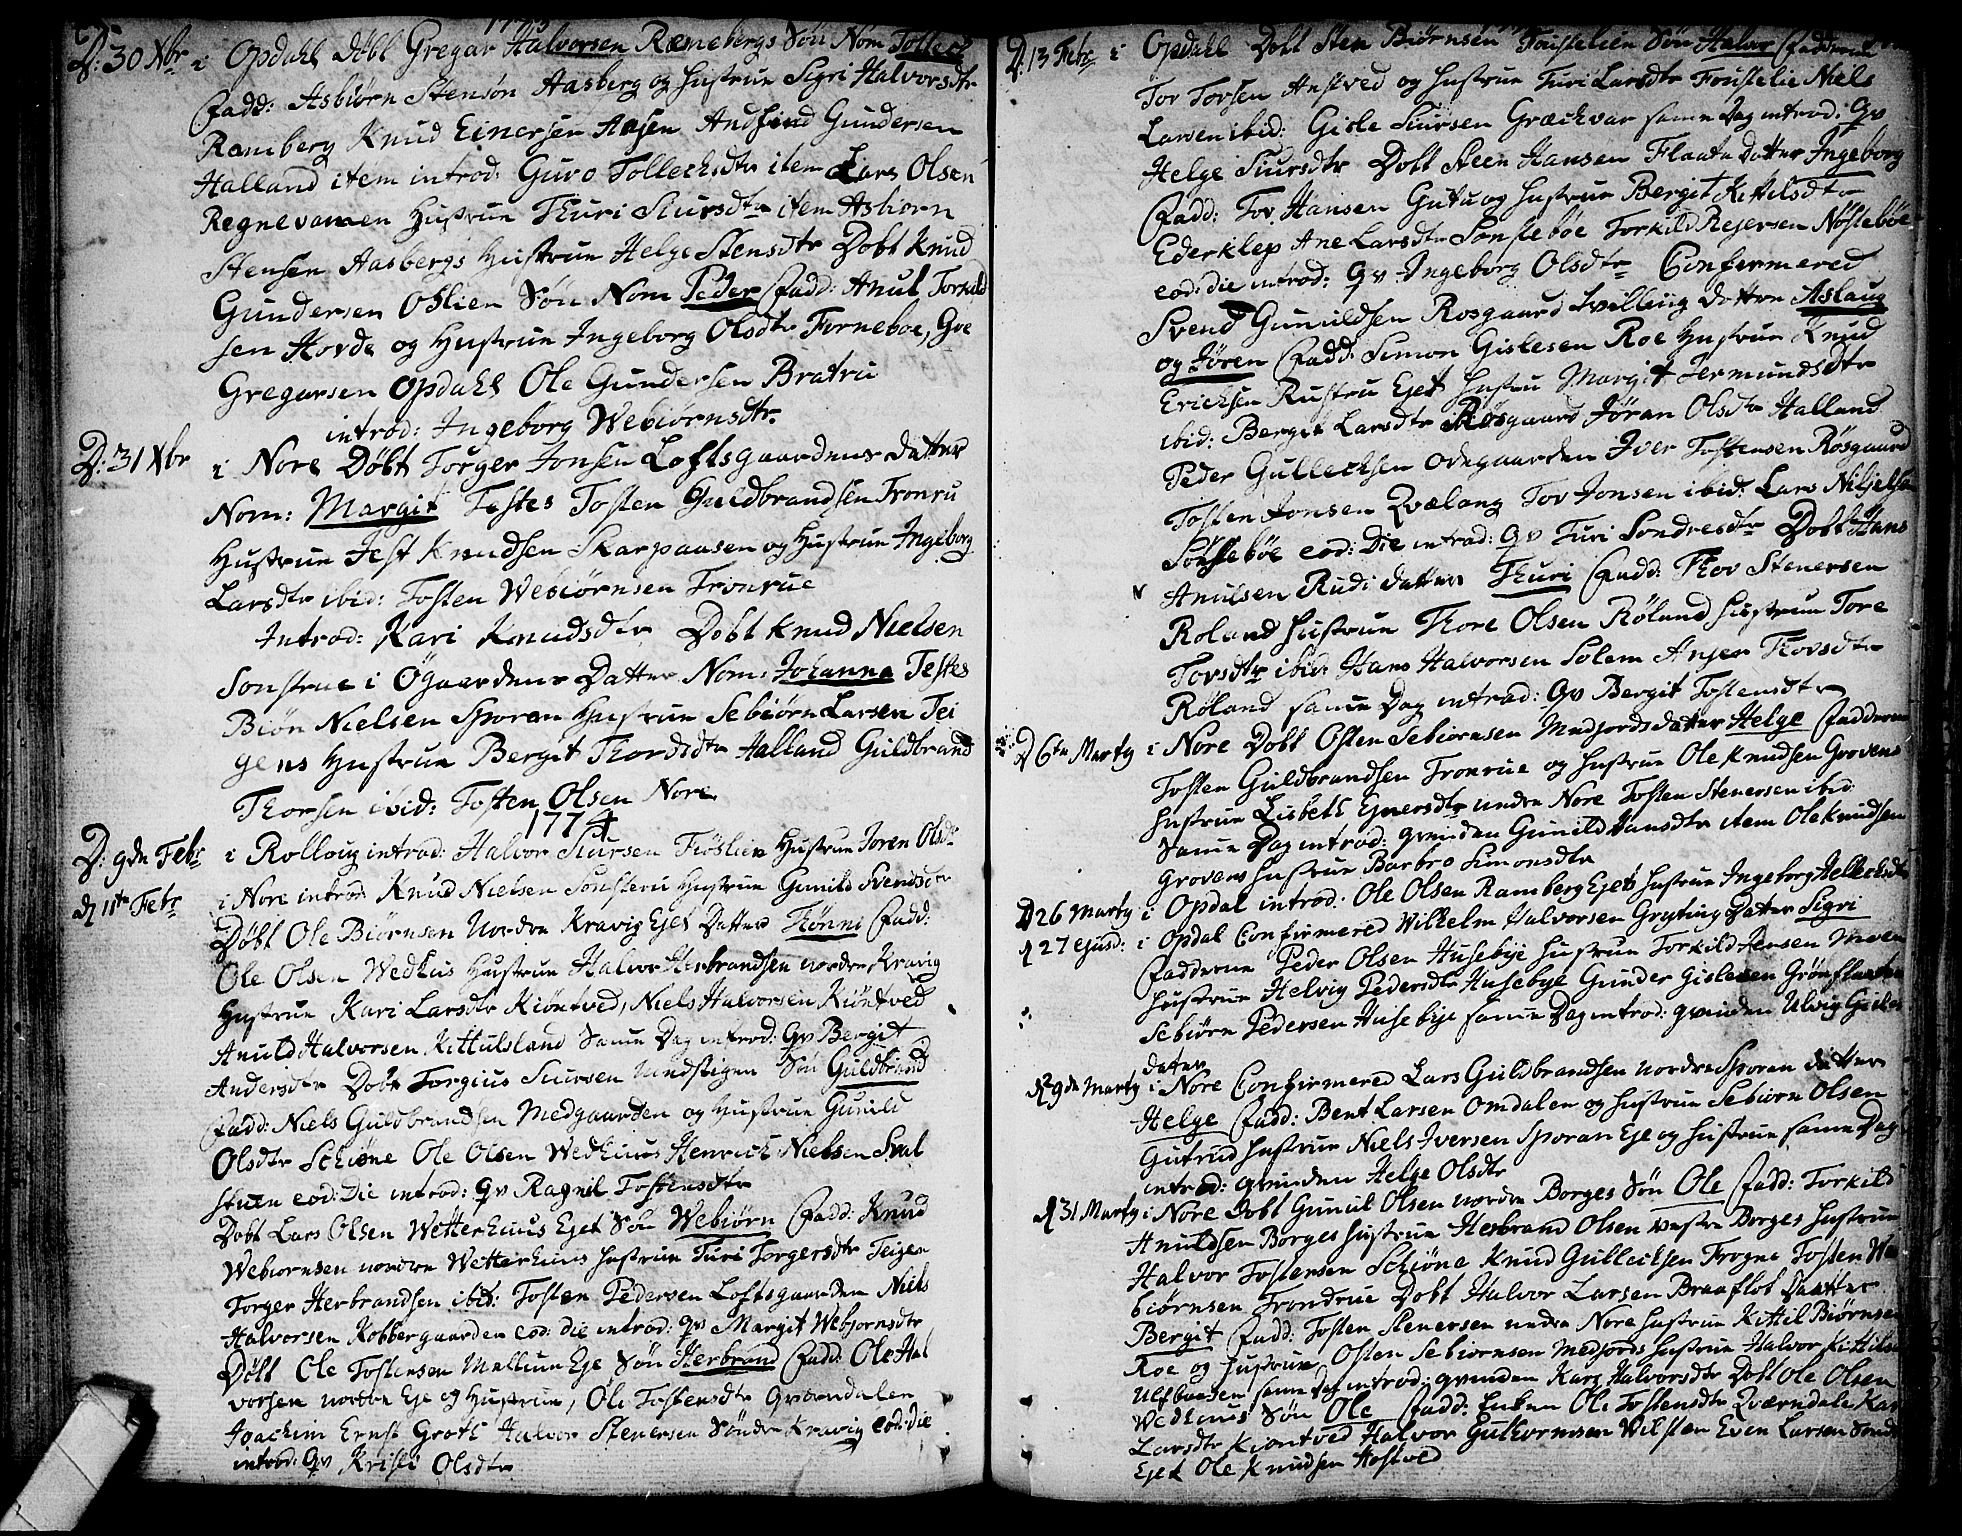 1773
D: 30 Xbr i Opdahl Døbt Gregar Halvorsen Ramebergs Søn Nom Tollech
Fadd: Asbiørn Stensøn Aasberg og Hustrue Sigri Halvorsdtr
Ramberg Knud Einersen Aasen Andfind Gundersen
Halland item introd: Guro Tollechsdtr item Lars Olsen
Regnevamen Hustrue Thuri Siursdtr item Asbiorn
Stensen Aasbergs Hustrue Helge Stensdtr Dobt Knud
Gundersen Oslien Søn Nom Peder Fadd: Anul Torkild
sen Hovde og Hustrue Ingeborg Olsdtr Forneboe, Goe
Gregarsen Opdahl Ole Gundersen Bratru
introd: Ingeborg Webiørnsdtr
D: 31 Xbr i Nore Døbt Torger Jonsen Loftsgaardens datter
Nom: Margit Testes Tosten Guldbrandsen Tronru
Hustrue Jest Knudsen Skarpaasen og Hustrue Ingeborg
Larsdtr ibid: Tosten Webiørnsen Tronrue
Introd: Kari Knudsdtr Dobt Knud Nielsen
Sonstrue i Øgaardens Datter Nom: Johanna Testes
Biøn Nielsen Sporan Hustrue Sebiørn Larsen Tei
gens Hustrue Bergit Thordsdtr Halland Guldbrand
Thorsen ibid: Tosten Olsen Nore
1774
D: 9de Febr i Rolloug introd: Halvor Siursen Fiøslien Hustrue Joren Olsdtr
d 11te Febr i Nore introd Knud Nielsen Sønsteru Hustrue Gunild Svendsdtr
Døbt Ole Biørnsen Nordre Kravig Ejet Datter Tønni Fadd:
Ole Olsen Wedhus Hustrue Halvor Herbrandsen nordre Kravig
Hustrue Kari Larsdtr Kiøntved, Niels Halvorsen Kiøntved
Anuld Halvorsen Kittulsland Samme Dag introd: Qv Bergit
Andersdtr Dobt Torgius Siursen Sundstigen Søn Guldbrand
Fadd: Niels Guldbrandsen Medgaarden og Hustrue Gunild
Olsdtr Schiøne Ole Olsen Wedhuus Henrich Nielsen Sval
stuen eod: Die introd: Qv Ragnil Tostensdtr
Dobt Lars Olsen Wetterhuus Ejet Søn Webiørn Fadd: Knud
Webiornsen nordre Wetterhuus Hustrue Turi Torgersdtr Teigen
Torger Herbrandsen ibid: Tosten Pedersen Loftsgaarden Niels
Halvorsen Kobbergaarden eod: die introd: Qv Margit Webjornsdtr
Døbt Ole Tostensen Mellium Eje Søn Herbrand Fadd: Ole Hal
vorsen nordre Eje og Hustrue, Ole Tostensdtr Qværndalen
Joachim Ernst Groth Halvor Stenersen Søndre Kravig eod: Die
introd: Qv Kristi Olsdtr
D. 13 Febr i Opdahl Dobt Sten Biørnsen Fønstelien Søn Halvor Fadderne
Tov Torsen Anstved og Hustrue Turi Larsdtr Fønstelie Niels
Larsen ibid: Gisle Siursen Græchvar samme Dag introd: Qv
Helge Siursdtr Dobt Steen Hansen Flaata Datter Ingeborg
Fadd: Tov Hansen Gutu og Hustrue Bergit Kittilsdtr
Ederklep Ane Larsdtr Sønstebøe Torkild Rejersen Nøstebøe
eod: die introd: Qv Ingeborg Olsdtr Confermered
Svend Gunuldsen Rosgaard Tvilling dottre Aslaug
og Jøren Fadd: Simon Gislesen Roe Hustrue Knud
Erichsen Rustru Ejet Hustru Margit Germundsdtr
ibid: Bergit Larsdtr Røsgaard Jøran Olsdtr Halland
Peder Gullechsen Odegaarden Iver Tostensen Røsgaard
Tosten Jonsen Qvelang Tov Jonsen ibid: Lars Niljelsen
Sønstebøe eod: Die introd: Qv Turi Sondresdtr Dobt Hans
Anulsen Rudi datter Thuri Fadd: Thov Stenersen
Roland Hustrue Thore Olsen Røland Hustrue Tore
Torsdtr ibid: Hans Halvorsen Solem Anser Thovsdtr
Røland samme Dag introd: Qv Bergit Tostensdtr
D 6te Marty i Nore Dobt Osten Sebiørnsen Medfjords datter Helge Fadderne
Tosten Guldbrandsen Tronrue og Hustrue Ole Knudsen Grovens
Hustrue Lisbeth Ejnersdtr nedre Nore Tosten Stenersen ibid
Samme Dag introd: qvinden Gunild Hansdtr item Ole Knudsen
Grovens Hustrue Barbro Simonsdtr
D 26 Marty i Opdal introd: Ole Olsen Ramberg Ejets Hustrue Ingeborg Hellechsdtr
d 27 Ejusd: i Opdal Confirmered Wilhelm Halvorsen Gryting Datter Sigri
Fadderne Peder Olsen Husebye Hustrue Torkild Jensen Moen
Hustrue Helvig Pedersdtr Husebye Gunder Gislesen Grønflaaten
Sebiørn Pedersen Husebye samme Dag introd: qvinden Ulvig Gisles
datter
d 29de Marty i Nore Confirmered Lars Guldbrandsen nordre Sporan datter
Helge Fadd: Bent Larsen Omdalen og Hustrue Sebiørn Olsen
Gutrud Hustrue Niels Iversen Sporan Eje og Hustrue samme Dag
introd: qvinden Helge Olsdtr
d 31 Marty i Nore Dobt Gunuil Olsen nordre Borges Søn Ole Fadd: Torkild
Anuldsen Borges Hustrue Herbrand Olsen vestre Borges Hustrue
Halvor Tostensen Schiøne Knud Gulleichsen Frogne Tosten We
biørnsen Trondrue Dobt Halvor Larsen Braaflot Daatter
Bergit Fadd: Tosten Stenersen nedre Nore Hustrue Kittil Biørnsen
Roe og Hustrue Osten Sebiornsen Medfjords Hustrue Halvor Kittilsen
Ulfbaasen samme Dag introd: qvinden Kari Halvorsdtr Dobt Ole Olsen
Wedhuus Søn Ole Fadd: Enken Ole Tostensdtr Qværndale Kari
Larsdtr Kiøntved Halvor Guthormsen Wilsten Even Larsen Søndre
Ejet Ole Knudsen Hostved